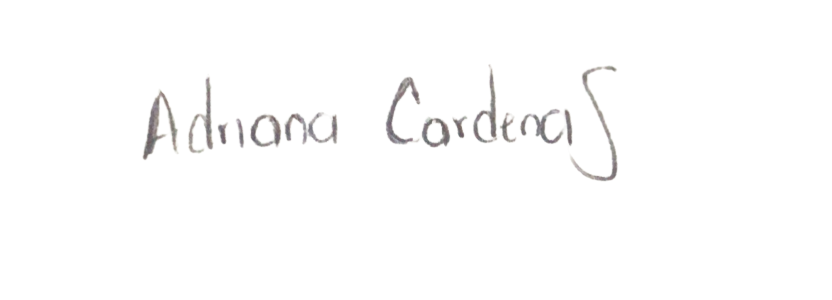 Adriana Cardenas